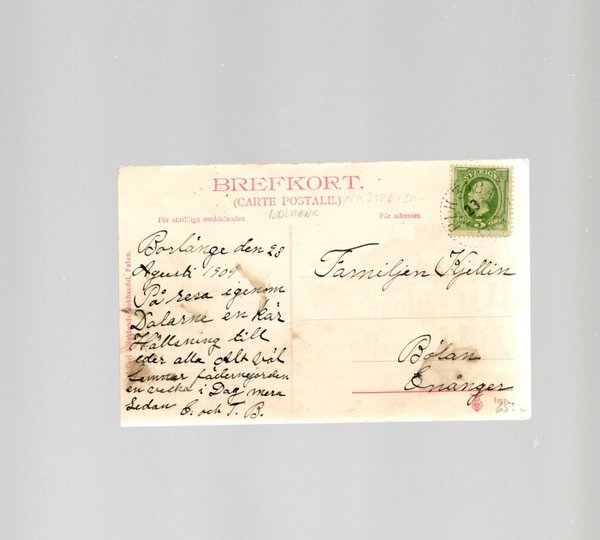 BREFKORT.
(CARTE POSTALE.)
För skriftliga meddelanden
För adresser.
SVERIGE
5
Borlänge den 28
Agusti 1909
På resa igenom
Dalarne en kär
Hällsning till
eder alla Alt Väl
Lemnar fädernejorden
en vecka i Dag mera
Sedan C. och T. B.
Familjen Kjellin
Bölan
Enånger
Imp.
65:-